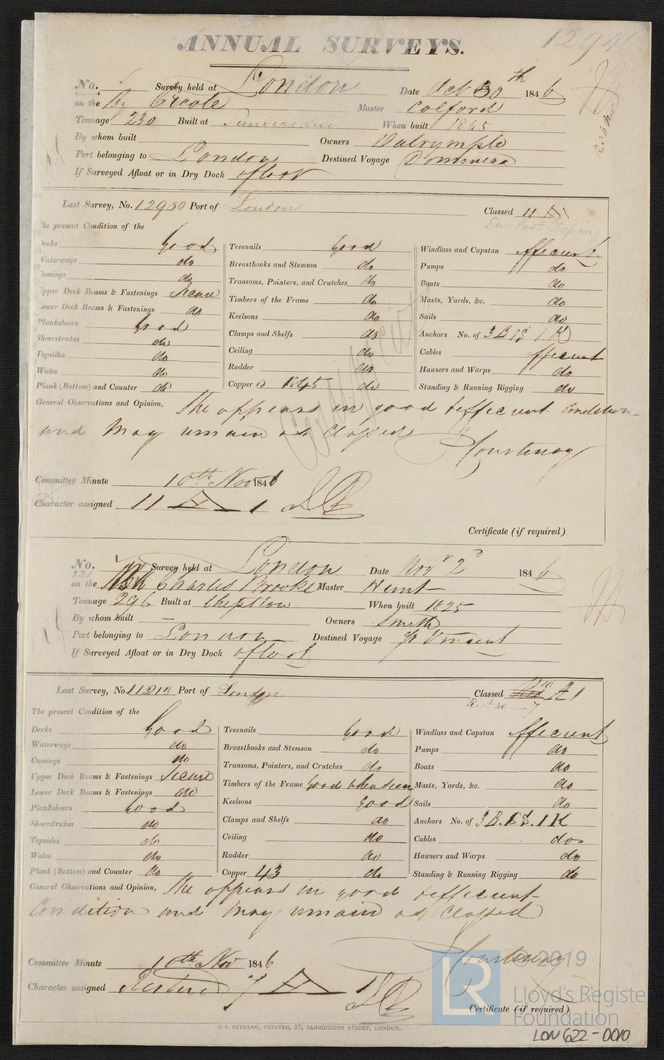 ANNUAL SURVEYS.
No. Survey held at London Date Oct 30th 1846
on the Bg Creole Master Colford
Tonnage 230 Built at Sunderland When built 1845
By whom built Owners Dalrymple
Port belonging to London Destined Voyage Demerara
If Surveyed Afloat or in Dry Dock afloat
Last Survey, No. 12950 Port of London Classed 11 A
The present Condition of the
Decks Good Treenails Good Windlass and Capstan Efficient
Waterways do Breasthooks and Stemson do Pumps do
Comings do Transoms, Pointers, and Crutches do Boats do
Upper Deck Beams & Fastenings Secure Timbers of the Frame do Masts, Yards, &c. do
Lower Deck Beams & Fastenings do Keelsons do Sails do
Planksheers Good Clamps and Shelfs do Anchors No. of 3 B 1 S 1 K
Sheerstrakes do Ceiling do Cables Efficient
Topsides do Rudder do Hawsers and Warps do
Wales do Copper is 1845 do Standing & Running Rigging do
Plank (Bottom) and Counter do
General Observations and Opinion, She appears in good & efficient Condition
and may remain as Classed
P Courtenay
Committee Minute 10th Nov 1846
Character assigned 11 A 1
Certificate (if required)
No. Survey held at London Date Novr 2d 1846
on the Charles Brooke Master Hunt
Tonnage 296 Built at Chepstow When built 1825
By whom built Owners Smith
Port belonging to London Destined Voyage St Vincent
If Surveyed Afloat or in Dry Dock afloat
Last Survey, No. 11212 Port of London Classed A 1
The present Condition of the
Decks Good Treenails Good Windlass and Capstan Efficient
Waterways do Breasthooks and Stemson do Pumps do
Comings do Transoms, Pointers, and Crutches do Boats do
Upper Deck Beams & Fastenings Secure Timbers of the Frame Good when seen Masts, Yards, &c. do
Lower Deck Beams & Fastenings do Keelsons Good Sails do
Planksheers Good Clamps and Shelfs do Anchors No. of 3 B. 1 S. 1 K
Sheerstrakes do Ceiling do Cables do
Topsides do Rudder do Hawsers and Warps do
Wales do Copper 43 do Standing & Running Rigging do
Plank (Bottom) and Counter do
General Observations and Opinion, She appears in good & efficient
Condition and may remain as Classed
P Courtenay
Committee Minute 10th Nov 1846
Character assigned Restored 7 A 1
Certificate (if required)
LR © 2019
Lloyd's Register
Foundation
LON 622-0010